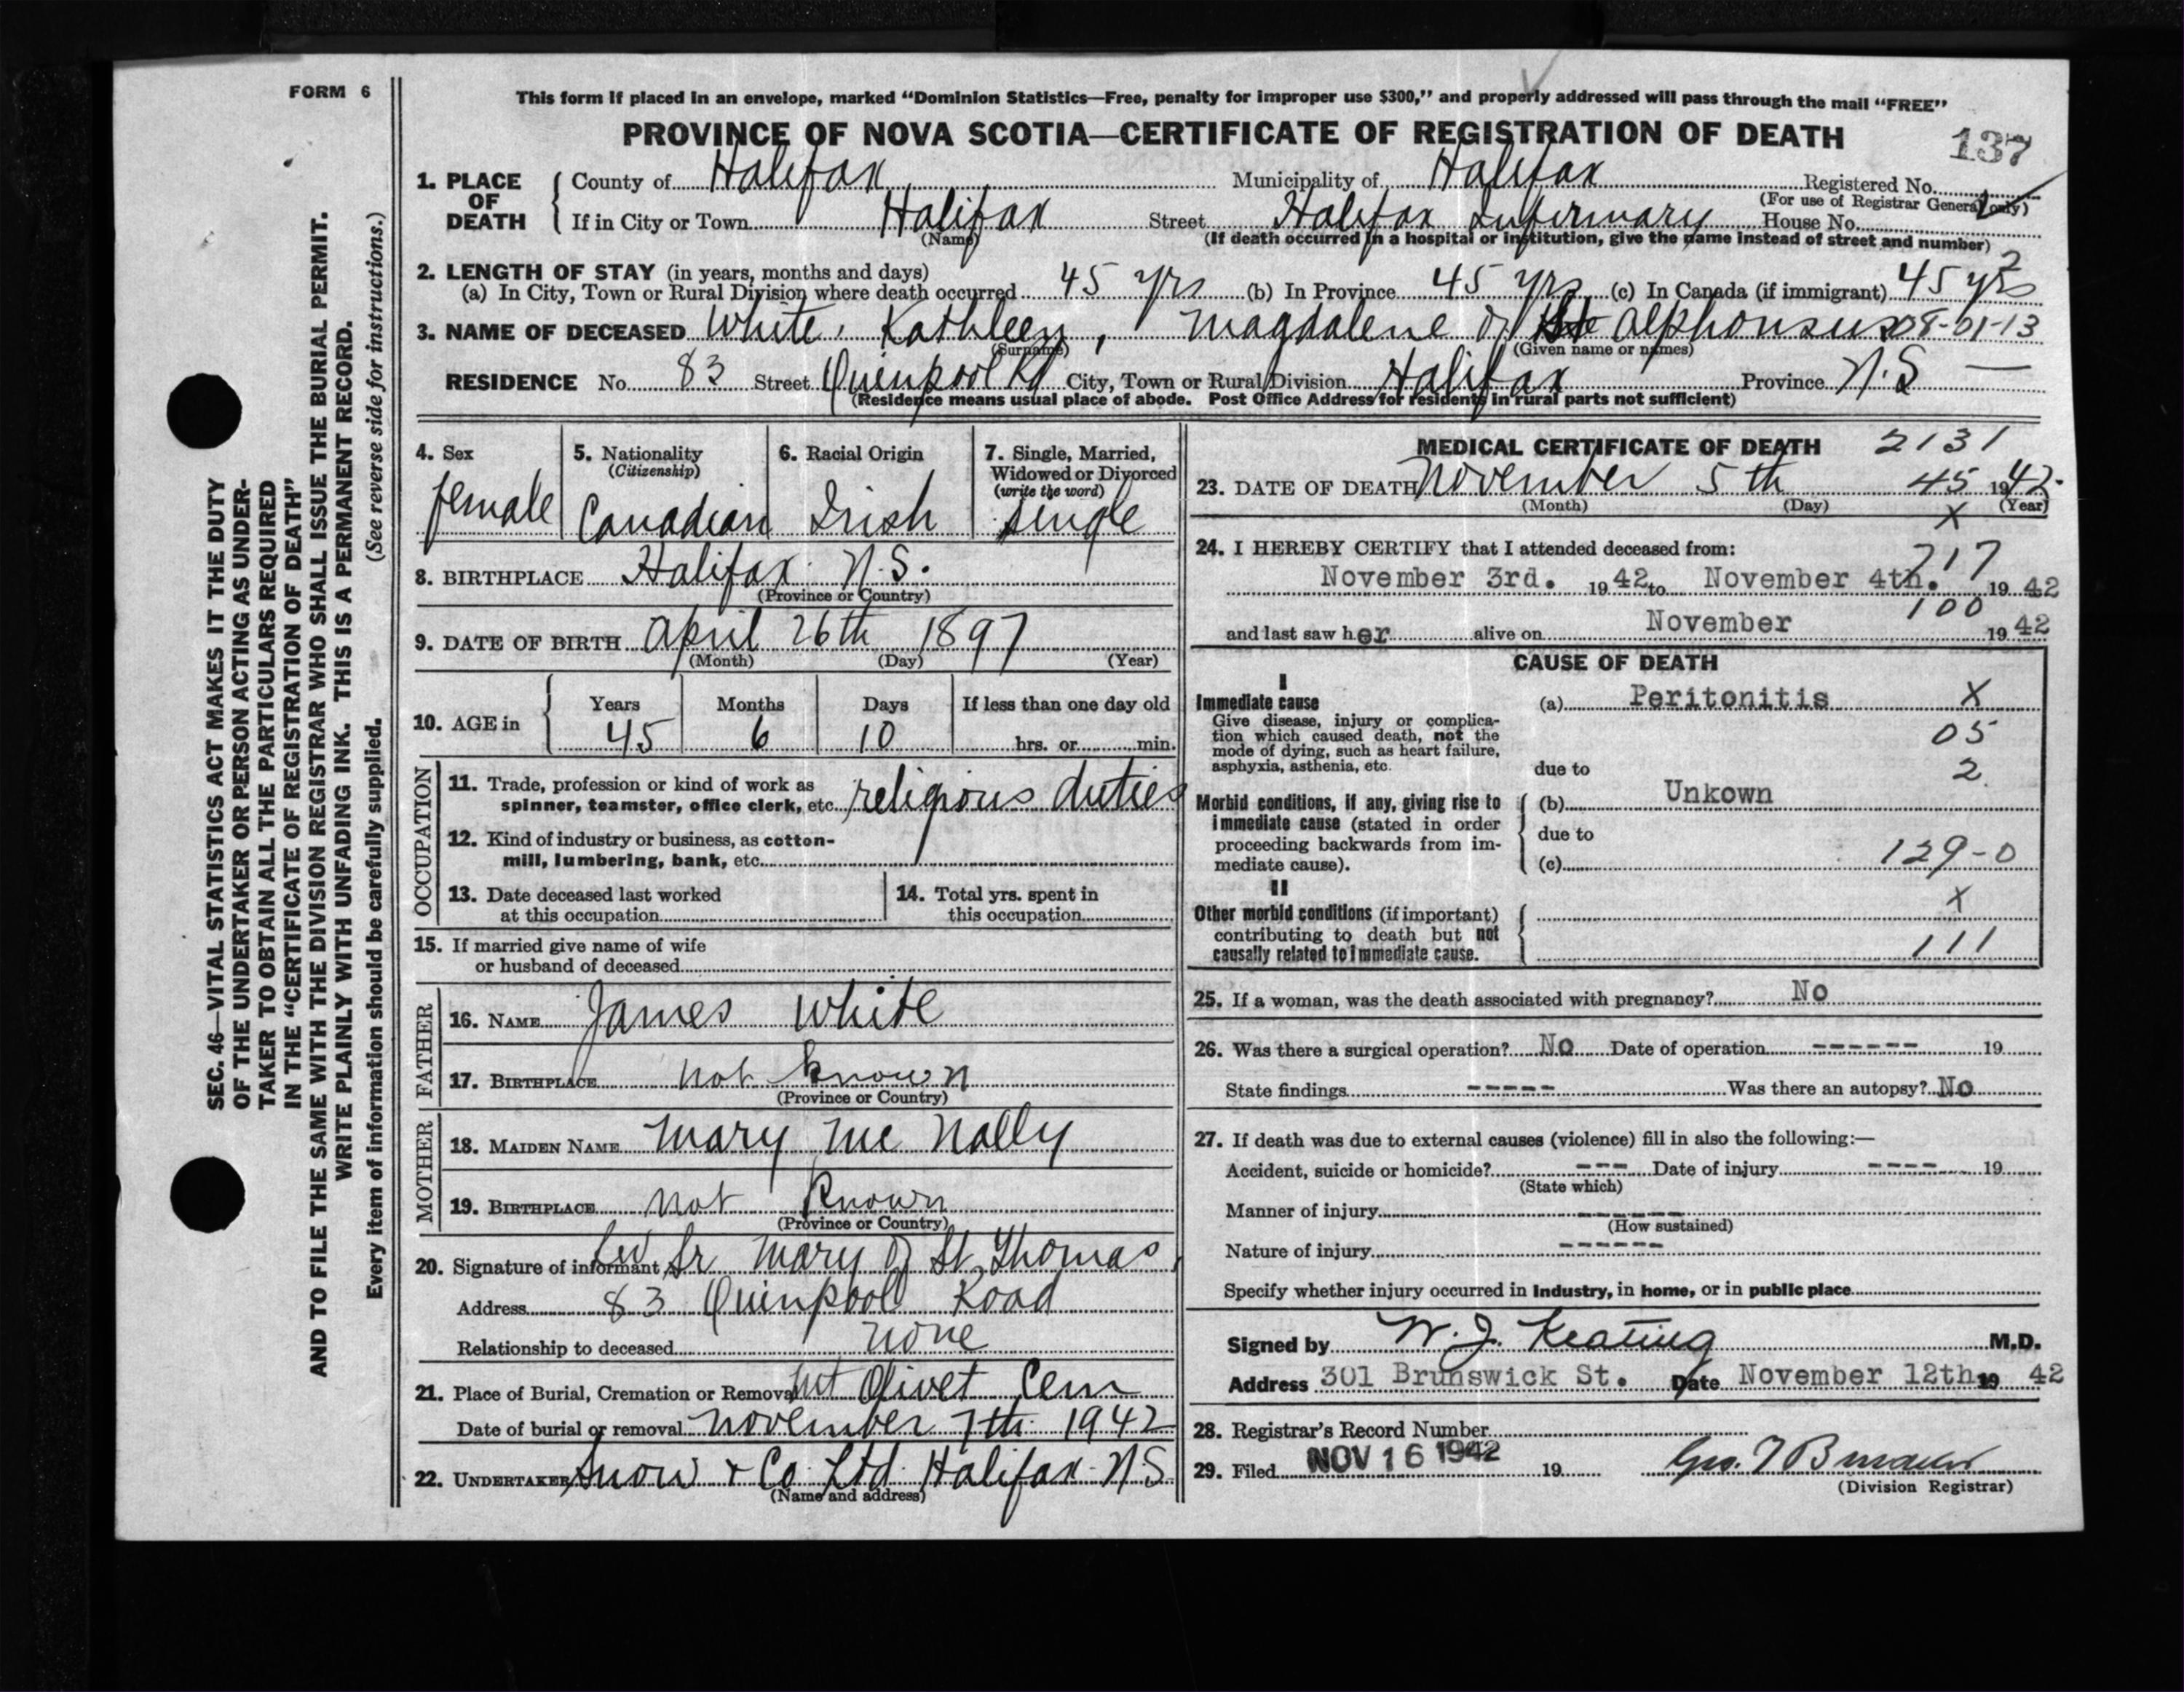 FORM 6
SEC. 46—VITAL STATISTICS ACT MAKES IT THE DUTY
OF THE UNDERTAKER OR PERSON ACTING AS UNDER-
TAKER TO OBTAIN ALL THE PARTICULARS REQUIRED
IN THE "CERTIFICATE OF REGISTRATION OF DEATH"
AND TO FILE THE SAME WITH THE DIVISION REGISTRAR WHO SHALL ISSUE THE BURIAL PERMIT.
WRITE PLAINLY WITH UNFADING INK. THIS IS A PERMANENT RECORD.
Every item of information should be carefully supplied. (See reverse side for instructions.)
This form if placed in an envelope, marked "Dominion Statistics—Free, penalty for improper use $300," and properly addressed will pass through the mail "FREE"
PROVINCE OF NOVA SCOTIA—CERTIFICATE OF REGISTRATION OF DEATH 137
1. PLACE OF DEATH County of Halifax Municipality of Halifax Registered No.
(For use of Registrar General only)
If in City or Town Halifax Street Halifax Infirmary House No.
(Name) (If death occurred in a hospital or institution, give the name instead of street and number)
2. LENGTH OF STAY (in years, months and days) 2
(a) In City, Town or Rural Division where death occurred 45 yrs (b) In Province 45 yrs (c) In Canada (if immigrant) 45 yrs
3. NAME OF DECEASED White, Kathleen, Magdalene of Alphonsus 08-01-13
(Surname) (Given name or names)
RESIDENCE No. 83 Street Quinpool Rd City, Town or Rural Division Halifax Province N.S —
(Residence means usual place of abode. Post Office Address for residents in rural parts not sufficient)
4. Sex 5. Nationality 6. Racial Origin 7. Single, Married,
(Citizenship) Widowed or Divorced
(write the word)
female Canadian Irish single
8. BIRTHPLACE Halifax N.S.
(Province or Country)
9. DATE OF BIRTH April 26th 1897
(Month) (Day) (Year)
10. AGE in Years Months Days If less than one day old
45 6 10 hrs. or min.
OCCUPATION
11. Trade, profession or kind of work as
spinner, teamster, office clerk, etc. religious duties
12. Kind of industry or business, as cotton-
mill, lumbering, bank, etc.
13. Date deceased last worked 14. Total yrs. spent in
at this occupation this occupation
15. If married give name of wife
or husband of deceased
FATHER
16. NAME James White
17. BIRTHPLACE not known
(Province or Country)
MOTHER
18. MAIDEN NAME Mary Mc Nally
19. BIRTHPLACE not known
(Province or Country)
20. Signature of informant Sr Mary of St. Thomas
Address 83 Quinpool Road
Relationship to deceased none
21. Place of Burial, Cremation or Removal Mt Olivet Cem
Date of burial or removal November 7th 1942
22. UNDERTAKER Snow & Co Ltd Halifax N.S.
(Name and address)
MEDICAL CERTIFICATE OF DEATH 2131
23. DATE OF DEATH November 5th 45 1942.
(Month) (Day) X (Year)
24. I HEREBY CERTIFY that I attended deceased from: 717
November 3rd. 1942 to November 4th. 1942
100
and last saw her alive on November 1942
CAUSE OF DEATH
I
Immediate cause (a) Peritonitis X
Give disease, injury or complica-
tion which caused death, not the 05
mode of dying, such as heart failure,
asphyxia, asthenia, etc. due to 2
Morbid conditions, if any, giving rise to (b) Unkown
immediate cause (stated in order due to
proceeding backwards from im-
mediate cause). (c) 129-0
II
X
Other morbid conditions (if important)
contributing to death but not
causally related to immediate cause. 111
25. If a woman, was the death associated with pregnancy? No
26. Was there a surgical operation? No Date of operation ------ 19
State findings ----- Was there an autopsy? No
27. If death was due to external causes (violence) fill in also the following:—
Accident, suicide or homicide? --- Date of injury ---- 19
(State which)
Manner of injury ------
(How sustained)
Nature of injury ------
Specify whether injury occurred in industry, in home, or in public place
Signed by W. J. Keating M.D.
Address 301 Brunswick St. Date November 12th 19 42
28. Registrar's Record Number
29. Filed NOV 16 1942 19
(Division Registrar)